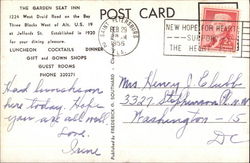 THE GARDEN SEAT INN
1224 West Druid Road on the Bay
Three Blocks West of Alt. U.S. 19
at Jeffords St. Established in 1920
for your dining pleasure.
LUNCHEON COCKTAILS DINNER
GIFT and GOWN SHOPS
GUEST ROOMS
PHONE 320271
POST CARD
FEB 29
2 PM
1956
FLA.
NEW HOPE FOR HEARTS
SUPPORT
THE HEART
Had luncheon
here today. Hope
you are all well
Love.
Irene
Mrs Henry J. Clubb
3327 Stephenson Pl. N.W.
Washington - 15
DC